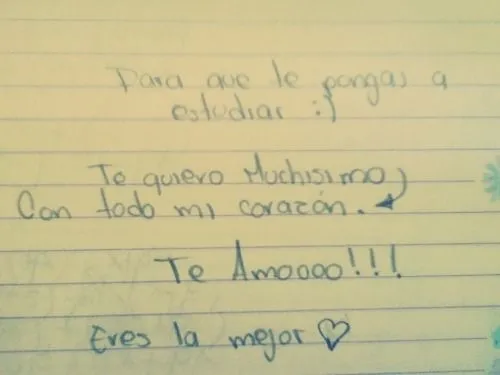 Para que te pongas a
estudiar :)
Te quiero Muchisimo
Con todo mi corazón.
Te Amoooo!!!
Eres la mejor ♡